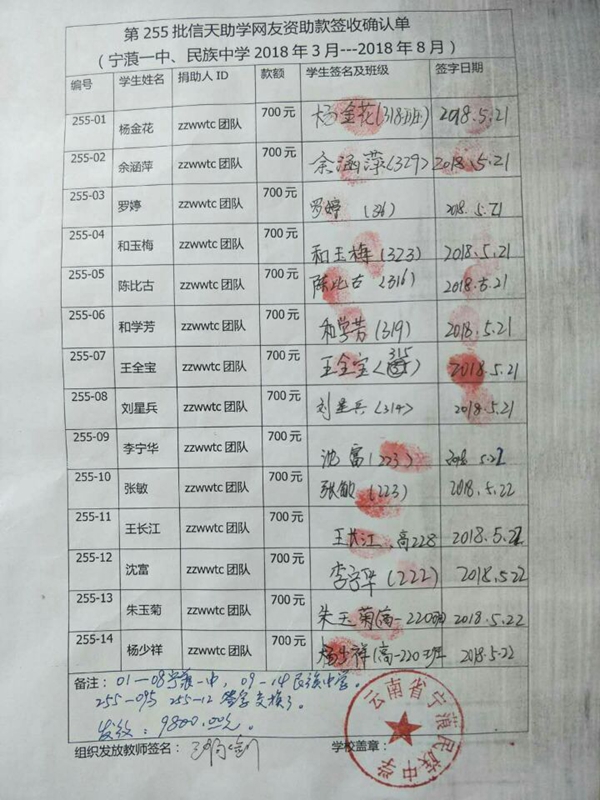 第 255 批信天助学网友资助款签收确认单
（宁蒗一中、民族中学 2018 年 3 月---2018 年 8 月）
编号 学生姓名 捐助人 ID 款额 学生签名及班级 签字日期
255-01 杨金花 zzwwtc 团队 700 元 杨金花(318班) 2018.5.21
255-02 余涵萍 zzwwtc 团队 700 元 余涵萍(329) 2018.5.21
255-03 罗婷 zzwwtc 团队 700 元 罗婷 (316) 2018.5.21
255-04 和玉梅 zzwwtc 团队 700 元 和玉梅 (323) 2018.5.21
255-05 陈比古 zzwwtc 团队 700 元 陈比古 (316) 2018.5.21
255-06 和学芳 zzwwtc 团队 700 元 和学芳 (319) 2018.5.21
255-07 王全宝 zzwwtc 团队 700 元 王全宝 (315) 2018.5.21
255-08 刘星兵 zzwwtc 团队 700 元 刘星兵 (314) 2018.5.21
255-09 李宁华 zzwwtc 团队 700 元 沈富 (223) 2018.5.22
255-10 张敏 zzwwtc 团队 700 元 张敏 (223) 2018.5.22
255-11 王长江 zzwwtc 团队 700 元 王长江、高228 2018.5.22
255-12 沈富 zzwwtc 团队 700 元 李宁华 (222) 2018.5.22
255-13 朱玉菊 zzwwtc 团队 700 元 朱玉菊(高一220班 2018.5.22
255-14 杨少祥 zzwwtc 团队 700 元 杨少祥(高一220班 2018.5.22
备注: 01—08宁蒗一中, 09-14民族中学。
255-09与 255-12 签字交换了。
发放: 9800.00元。
组织发放教师签名： 学校盖章：
云南省宁蒗民族中学